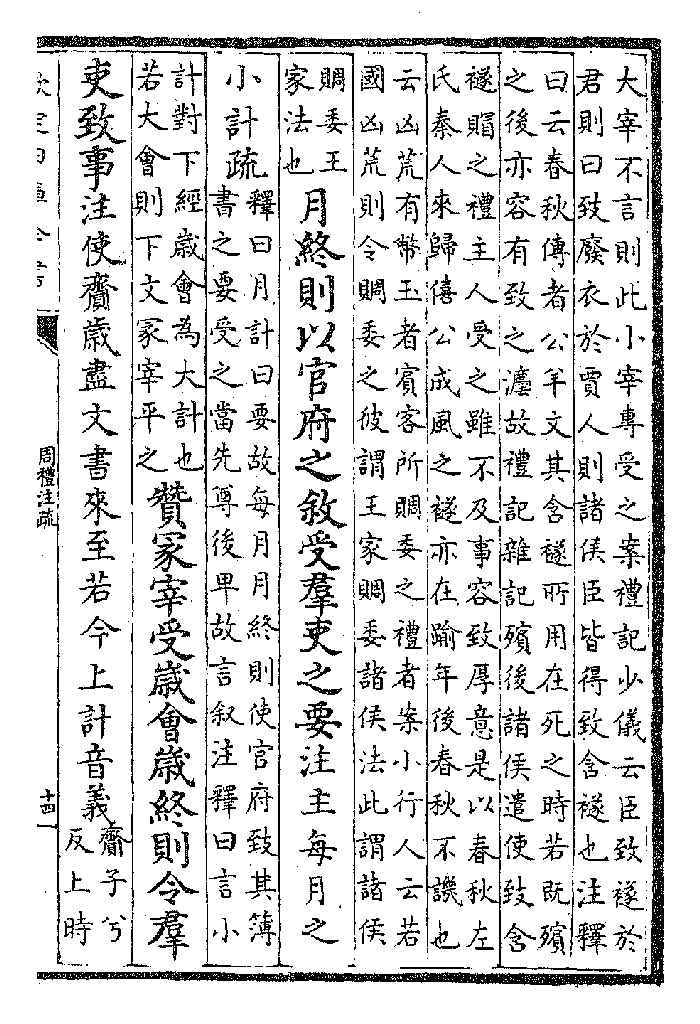 大宰不言則此小宰專受之案禮記少儀云臣致禭於
君則曰致廢衣於賈人則諸侯臣皆得致含禭也注釋
曰云春秋傳者公羊文其含禭所用在死之時若既殯
之後亦容有致之灋故禮記雜記殯後諸侯遣使致含
禭賵之禮主人受之雖不及事容致厚意是以春秋左
氏秦人來歸僖公成風之禭亦在踰年後春秋不譏也
云凶荒有幣玉者賓客所賙委之禮者案小行人云若
國凶荒則令賙委之彼謂王家賙委諸侯法此謂諸侯
賙委王
家法也
月終則以官府之敘受羣吏之要注主每月之
小計疏
釋曰月計曰要故每月月終則使官府致其簿
書之要受之當先尊後卑故言叙注釋曰言小
計對下經歲會為大計也
若大會則下文冢宰平之
贊冢宰受歲會歲終則令羣
吏致事注使齎歲盡文書來至若今上計音義
齎子兮
反上時
周禮注疏
十四